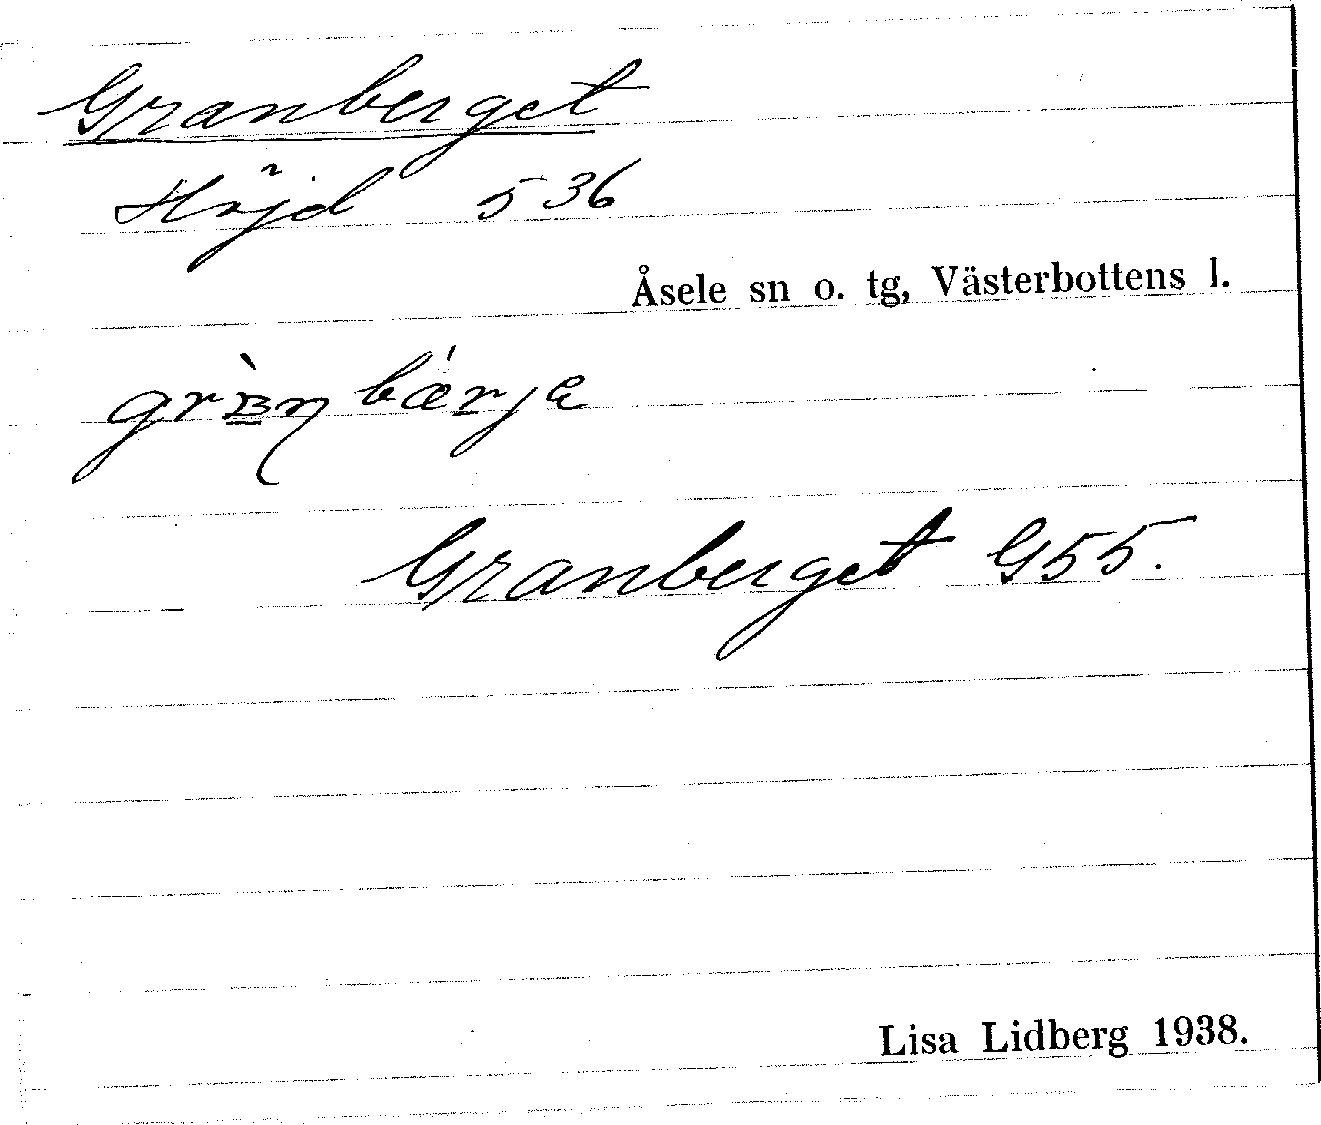 Granberget
Höjd 536
Åsele sn o. tg, Västerbottens l.
Granberget G55.
Lisa Lidberg 1938.